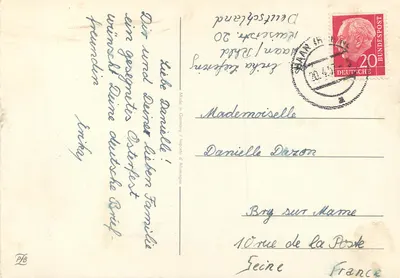 Liebe Danielle!
Dir und Deiner lieben Familie
ein gesegnetes Osterfest
wünscht Deine deutsche Brief
freundin
Erika
Haan / Rhld
Kaiserstr 20
Deutschland
HAAN (RHEINL
20.4.5
a
20
DEUTSCHE
BUNDESPOST
Mademoiselle
Danielle Dazon
Bry sur Marne
10 rue de la Poste
Seine
France